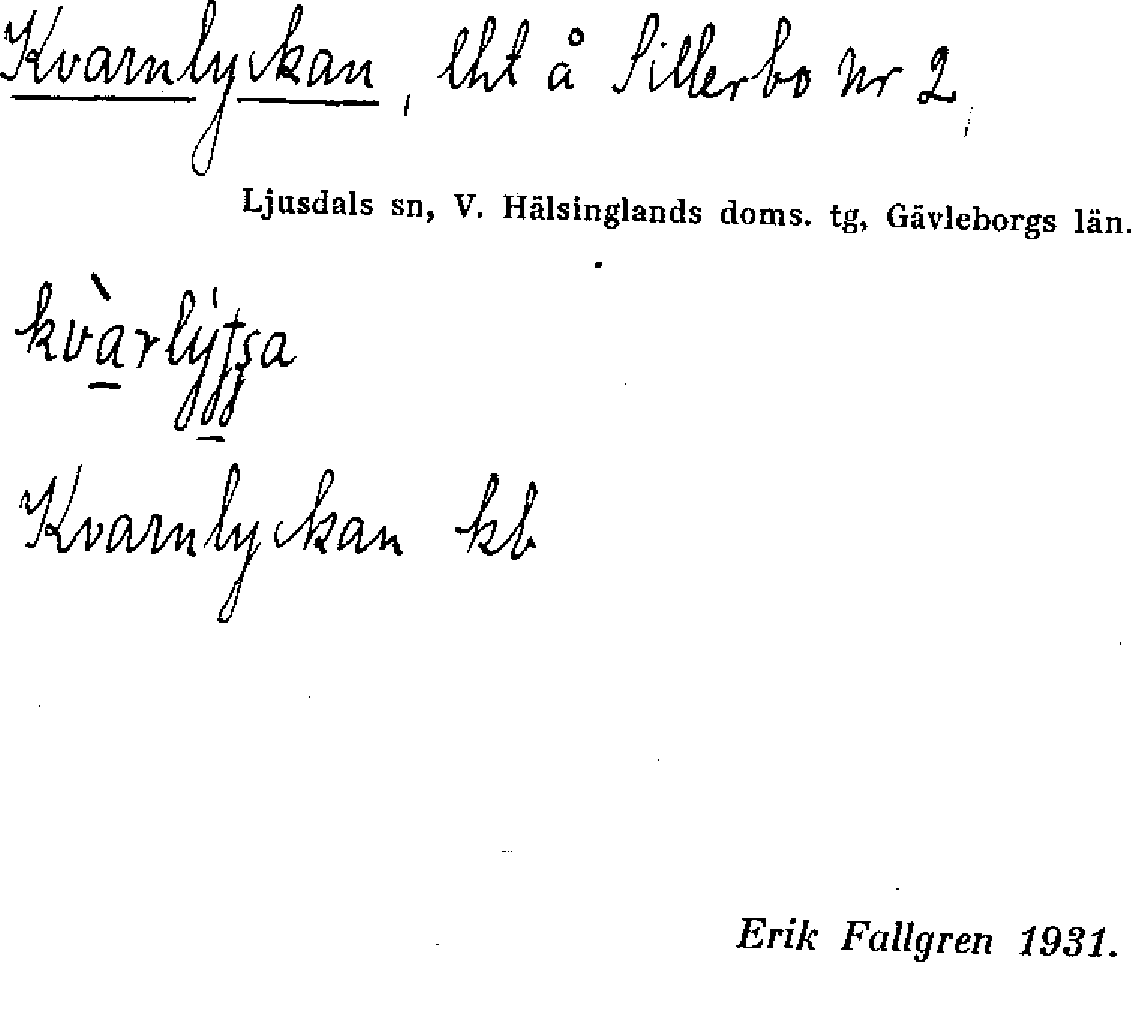 Kvarnlyckan, lht å Sillerbo nr 2,
Ljusdals sn, V. Hälsinglands doms. tg, Gävleborgs län.
Kvarnlyckan kb
Erik Fallgren 1931.